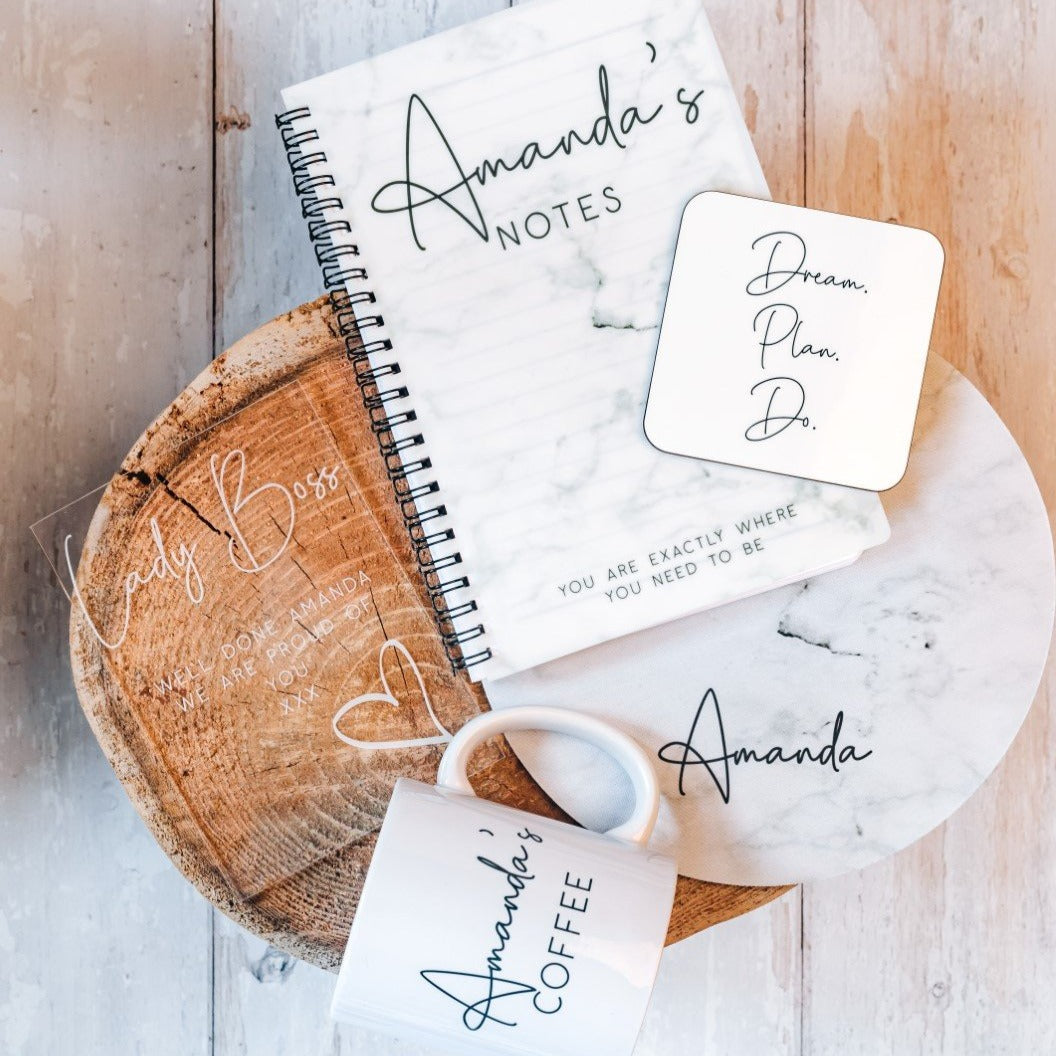 Amanda's
NOTES
YOU ARE EXACTLY WHERE
YOU NEED TO BE
Dream.
Plan.
Do.
Lady Boss
WELL DONE AMANDA
WE ARE PROUD OF
YOU
XXX
Amanda
Amanda's
COFFEE